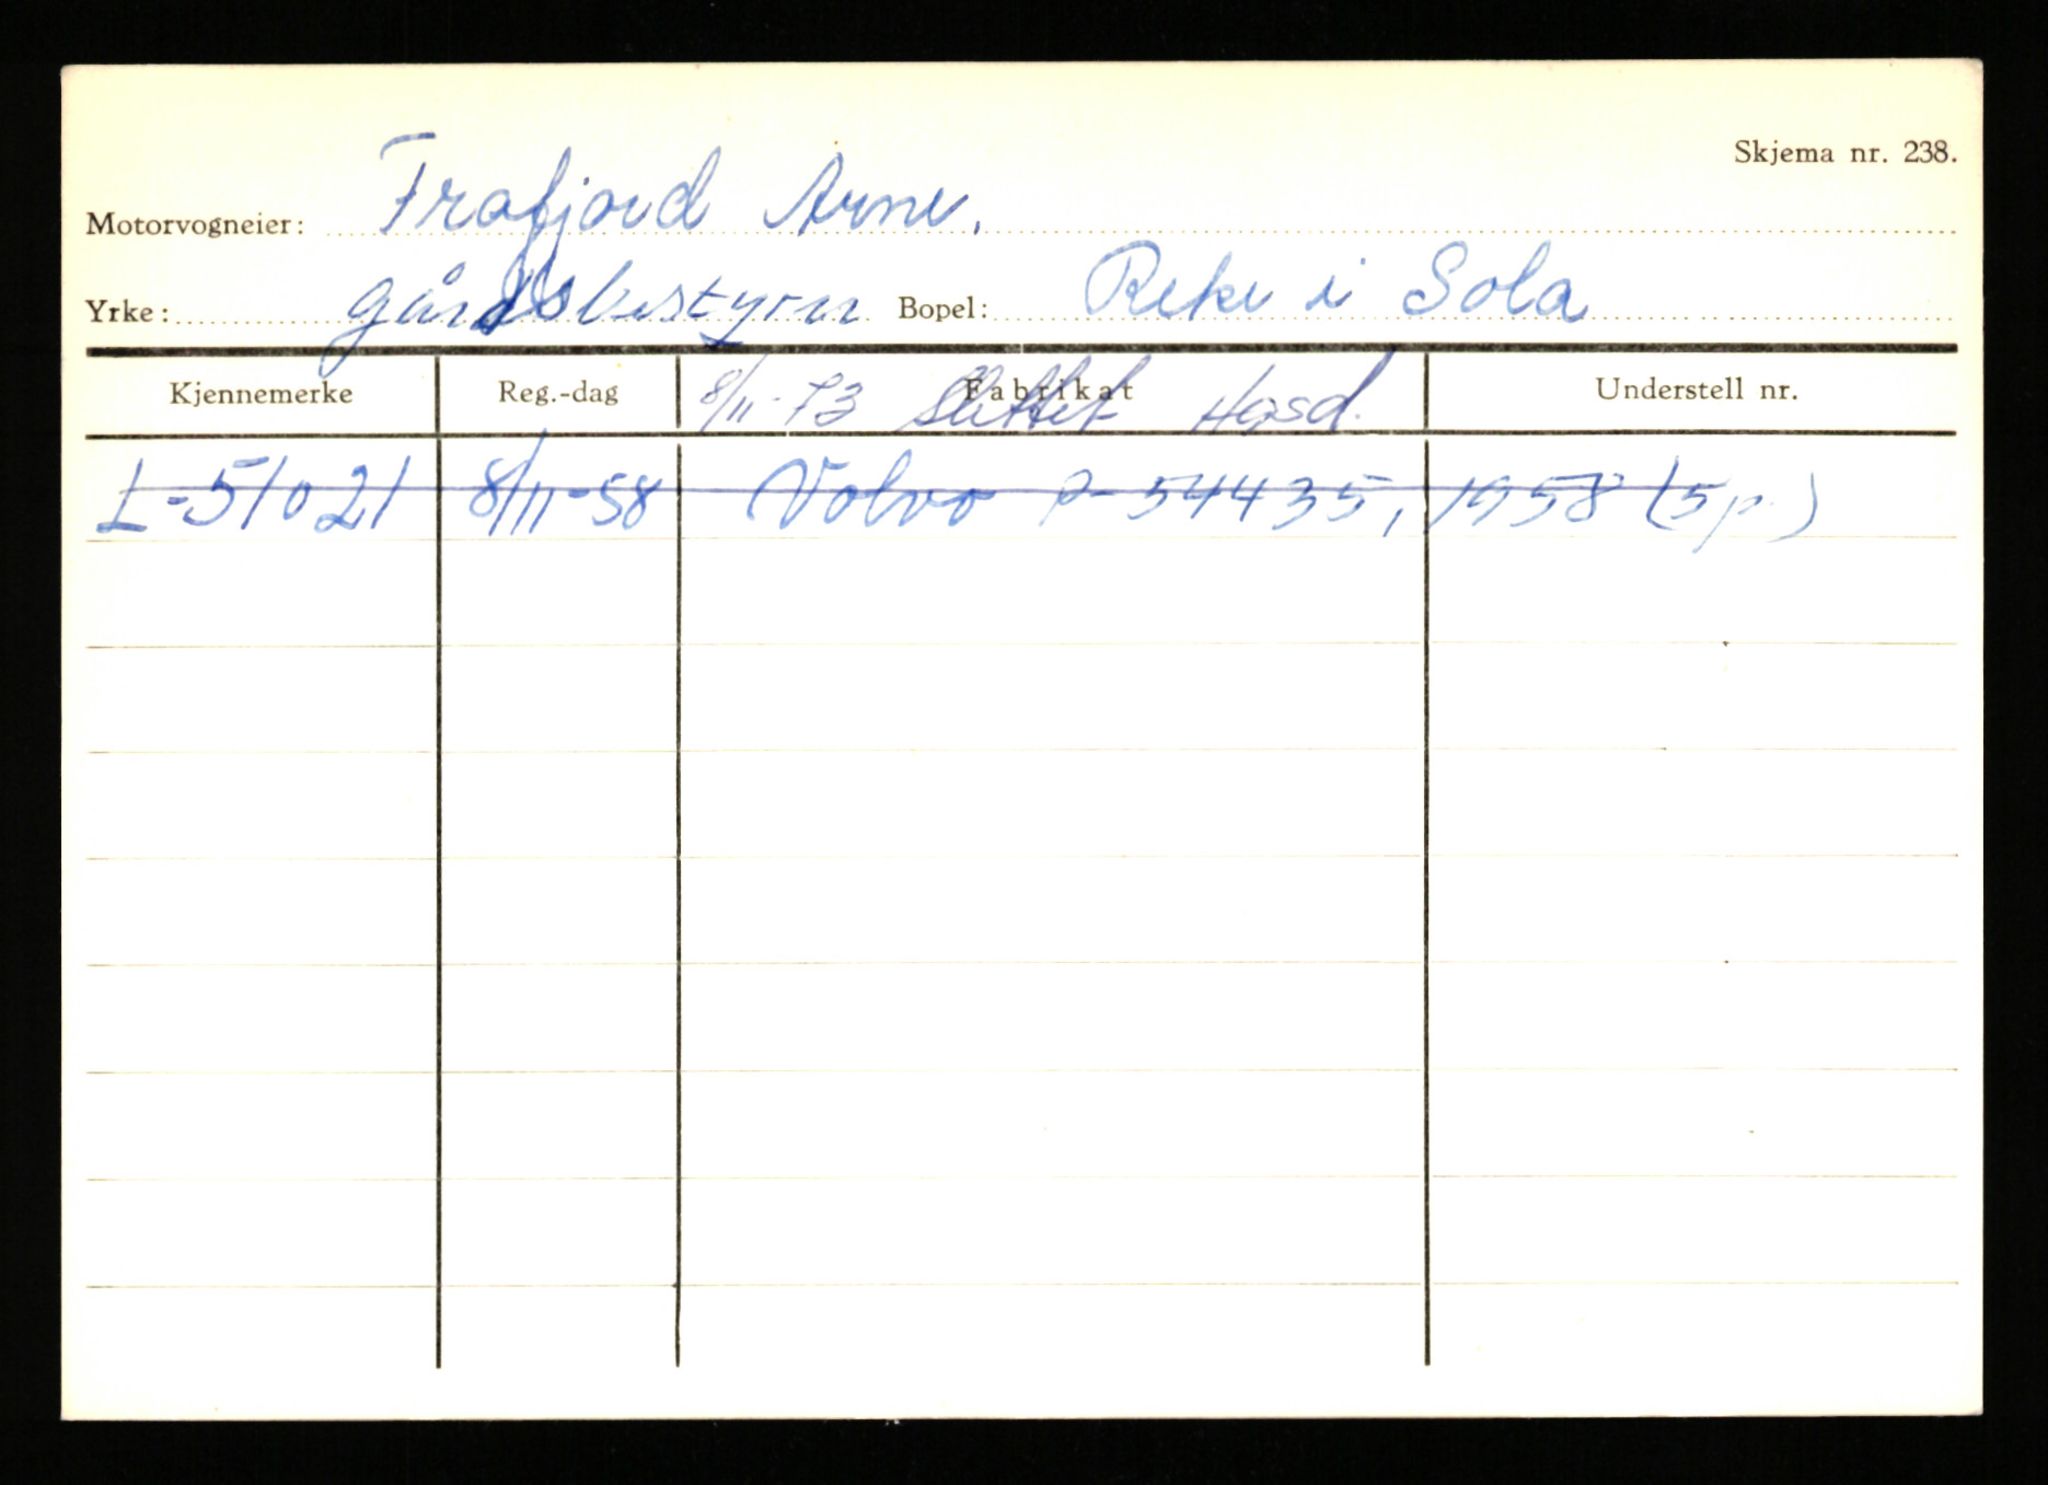 Skjema nr. 238.
Motorvogneier: Frafjord Arne.
Yrke: gårdsbestyrer Bopel: Reke i Sola
Kjennemerke Reg.-dag Fabrikat Understell nr.
8/11-73 Slettet
L-51021 8/11-58 Volvo P-54435, 1958 (5 p.)